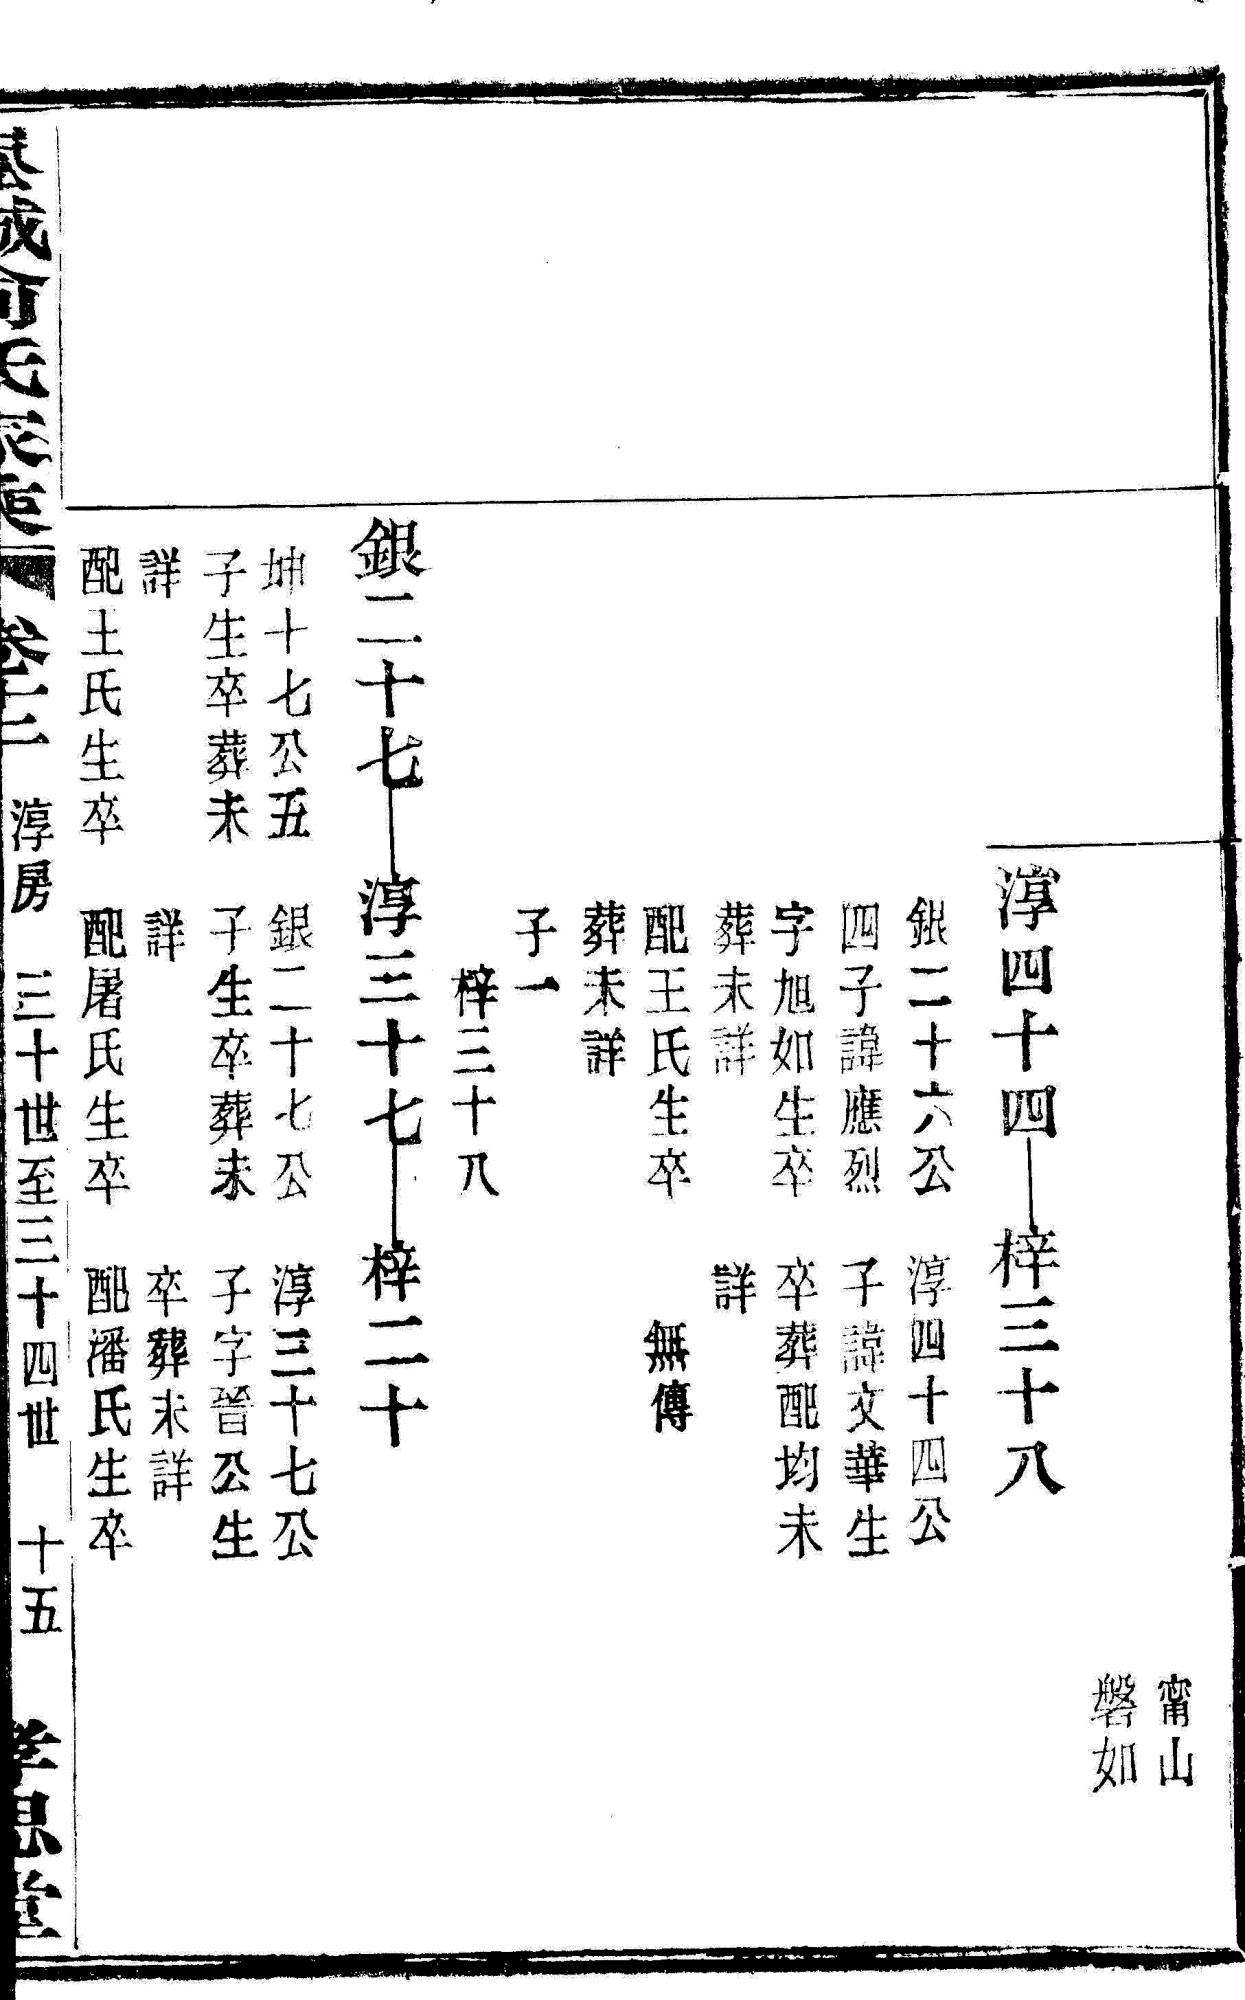 甯山
磐如
淳四十四 梓三十八
銀二十六公
四子諱應烈
字旭如生卒
葬未詳
配王氏生卒
葬未詳
子一
梓三十八
淳四十四公
子諱文華生
卒葬配均未
詳
無傳
銀二十七 淳三十七 梓二十
坤十七公五
子生卒葬未
詳
配王氏生卒
銀二十七公
子生卒葬未
詳
配屠氏生卒
淳三十七公
子字晉公生
卒葬未詳
配潘氏生卒
城俞氏家乘 卷十二 淳房 三十世至三十四世 十五 孝思堂